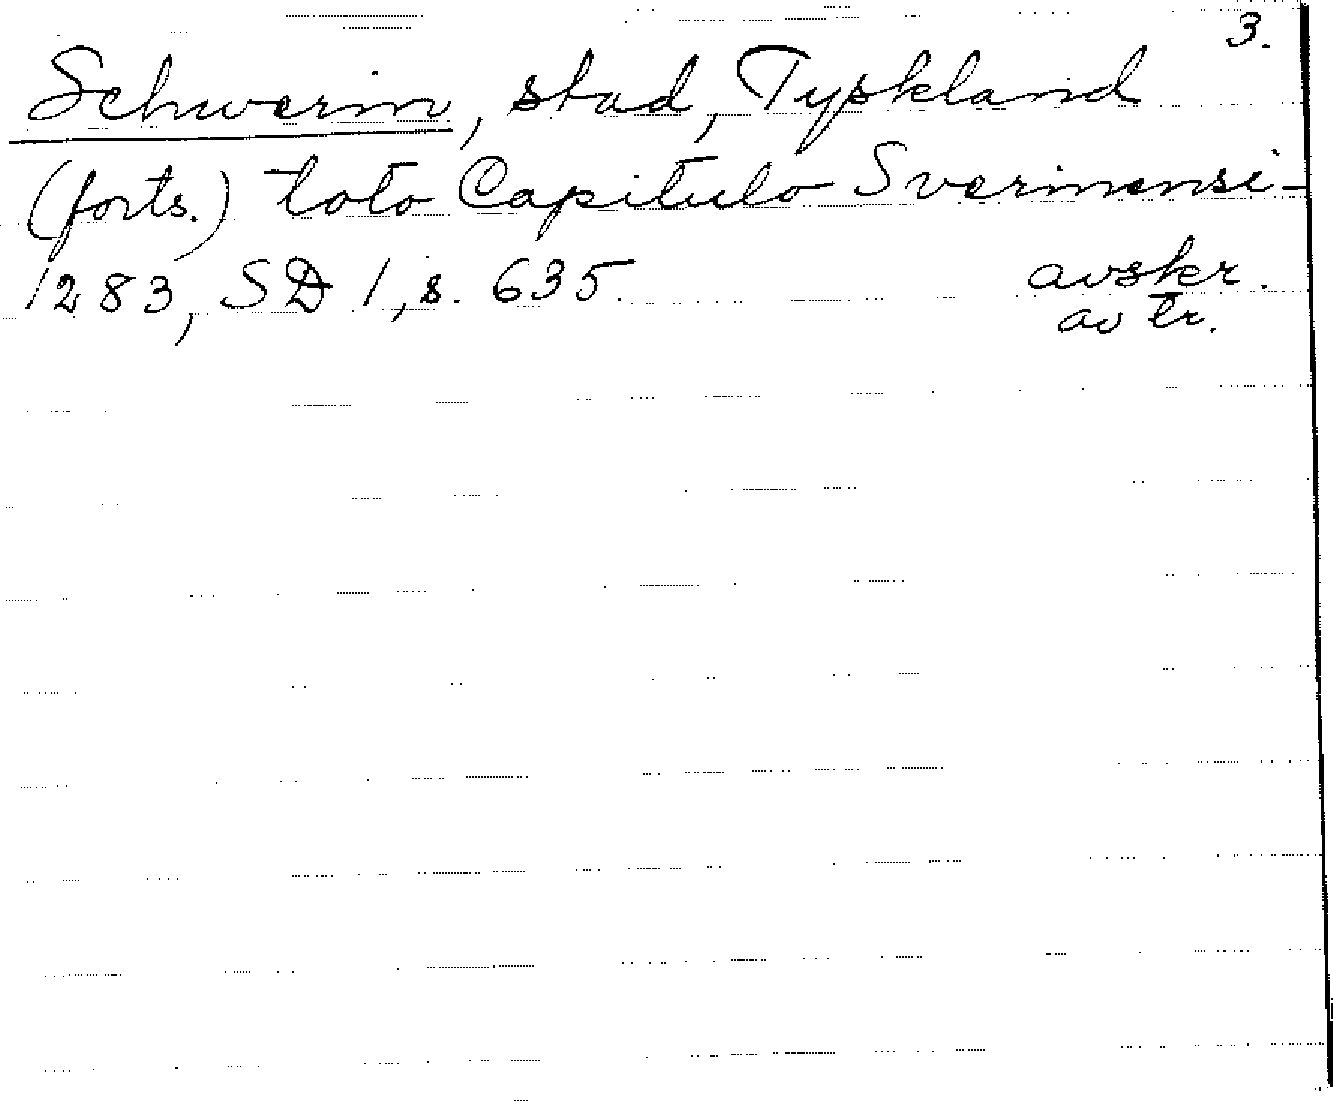 3.
Schwerin, stad, Tyskland
(forts.) toto Capitulo Sverinensi-
1283, SD 1, s. 635 avskr.
av tr.